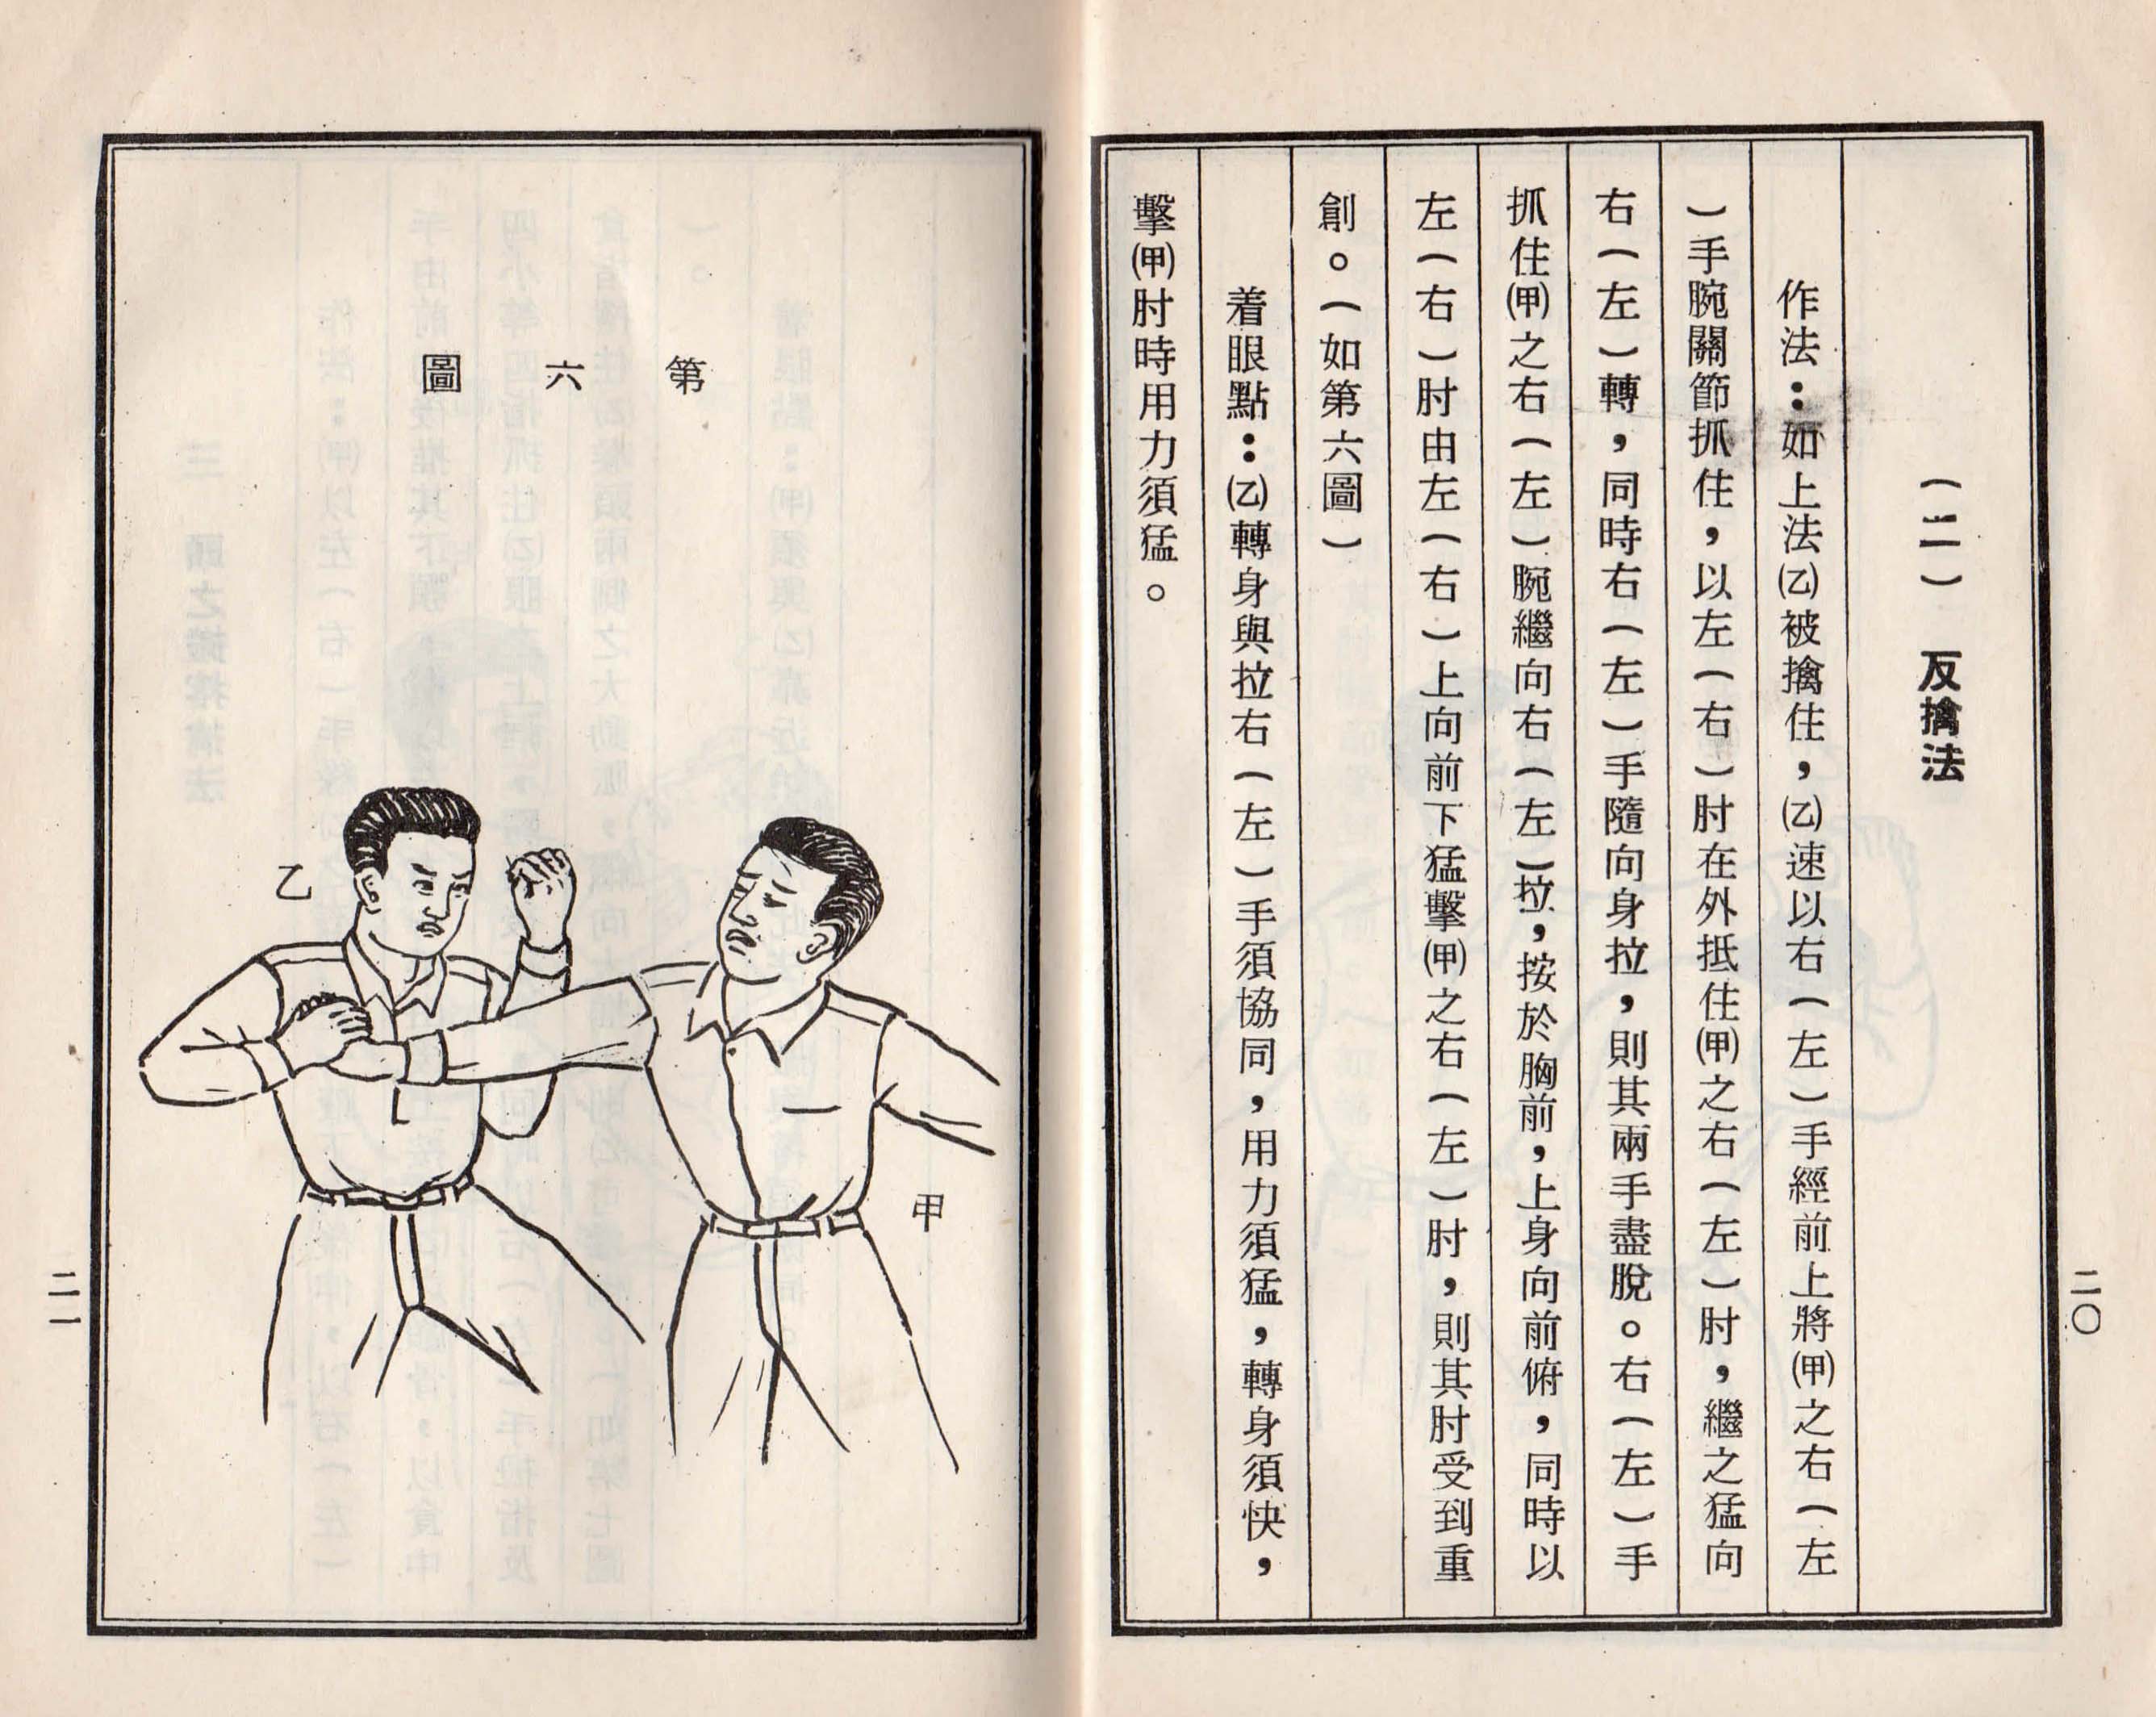 二〇
（二）　反擒法
作法：如上法㈡被擒住，㈡速以右（左）手經前上將㈙之右（左
）手腕關節抓住，以左（右）肘在外抵住㈙之右（左）肘，繼之猛向
右（左）轉，同時右（左）手隨向身拉，則其兩手盡脫。右（左）手
抓住㈙之右（左）腕繼向右（左）拉，按於胸前，上身向前俯，同時以
左（右）肘由左（右）上向前下猛擊㈙之右（左）肘，則其肘受到重
創。（如第六圖）
着眼點：㈡轉身與拉右（左）手須協同，用力須猛，轉身須快，
擊㈙肘時用力須猛。
第六圖
乙
甲
二一